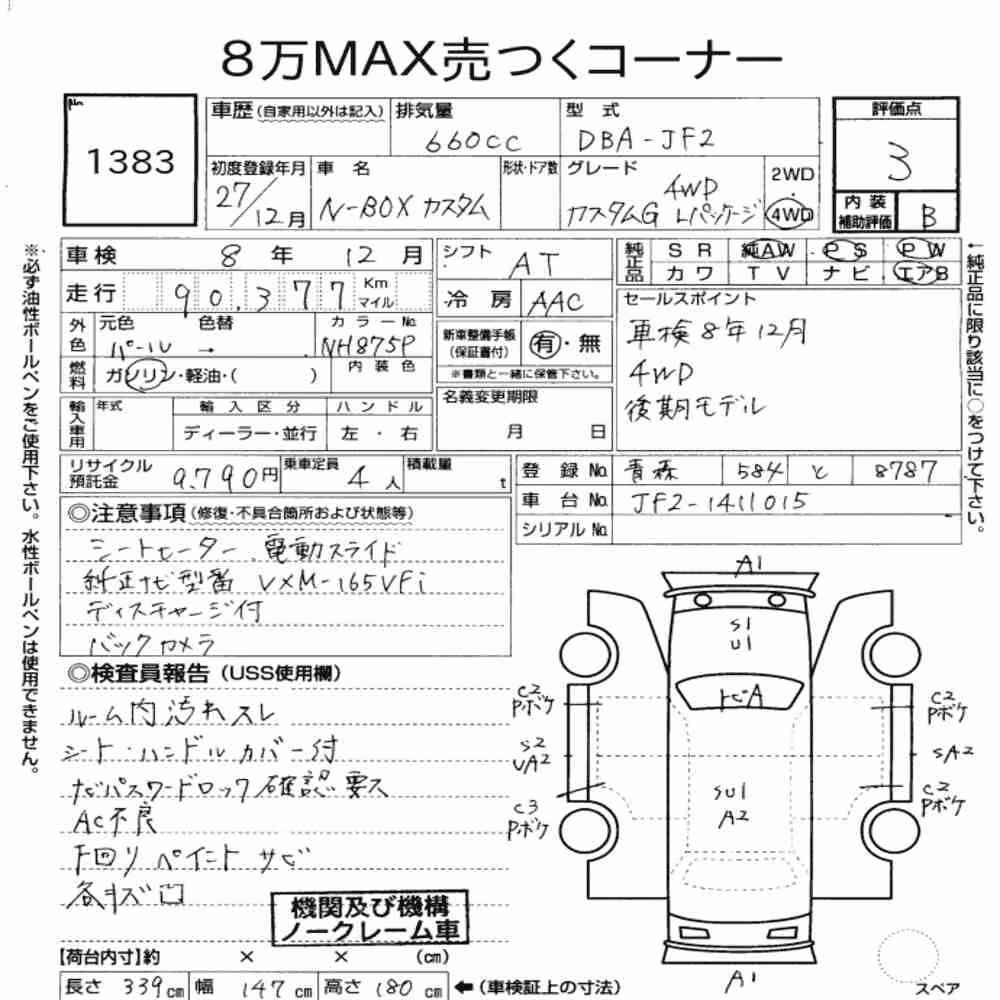 8万MAX売つくコーナー
No. 1383
車歴 (自家用以外は記入) 排気量 660cc 型式 DBA-JF2 評価点 3
初度登録年月 27/12月 車名 N-BOX カスタム 形状・ドア数 グレード カスタムG 4WD Lパッケージ 2WD・4WD 内装補助評価 B
車検 8年 12月 シフト AT 純正品 SR 純AW PS PW
カワ TV ナビ エアB
走行 90,377 Km マイル 冷房 AAC
外色 元色 パール → 色替 カラーNo. NH875P 新車整備手帳 (保証書付) 有・無
※書類と一緒に保管下さい。
燃料 ガソリン・軽油・( ) 内装色
セールスポイント
車検8年12月
4WD
後期モデル
輸入車用 年式 輸入区分 ハンドル 名義変更期限
ディーラー・並行 左・右 月 日
リサイクル預託金 9,790円 乗車定員 4人 積載量 t 登録No. 青森 584 と 8787
車台No. JF2-1411015
シリアルNo.
◎注意事項 (修復・不具合箇所および状態等)
シートヒーター、電動スライド
純正ナビ型番 VXM-165VFi
ディスチャージ付
バックカメラ
◎検査員報告 (USS使用欄)
ルーム内汚れスレ
シート・ハンドルカバー付
ナビパスワードロック確認要ス
AC不良
下回りペイントサビ
各キズ凹
機関及び機構
ノークレーム車
【荷台内寸】約 × × (cm)
長さ 339cm 幅 147cm 高さ 180cm ←(車検証上の寸法)
※必ず油性ボールペンをご使用下さい。水性ボールペンは使用できません。
←純正品に限り該当に○をつけて下さい。
A1
S1
U1
トビA
C2
Pボケ
C2
Pボケ
S2
UA2
SA2
SU1
A2
C3
Pボケ
C2
Pボケ
A1
スペア